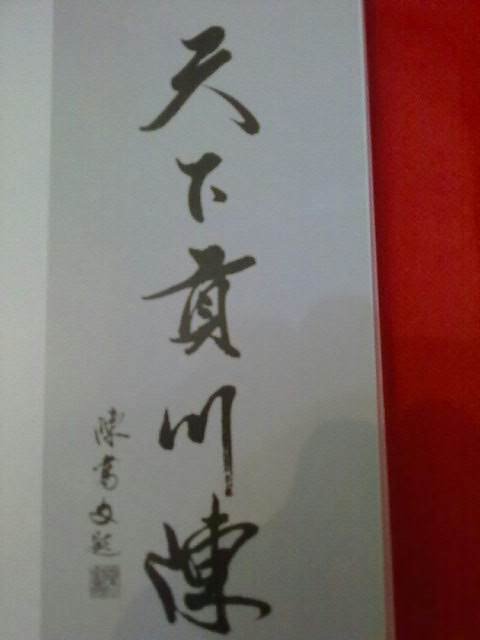 天下貢川陳
陳書文題